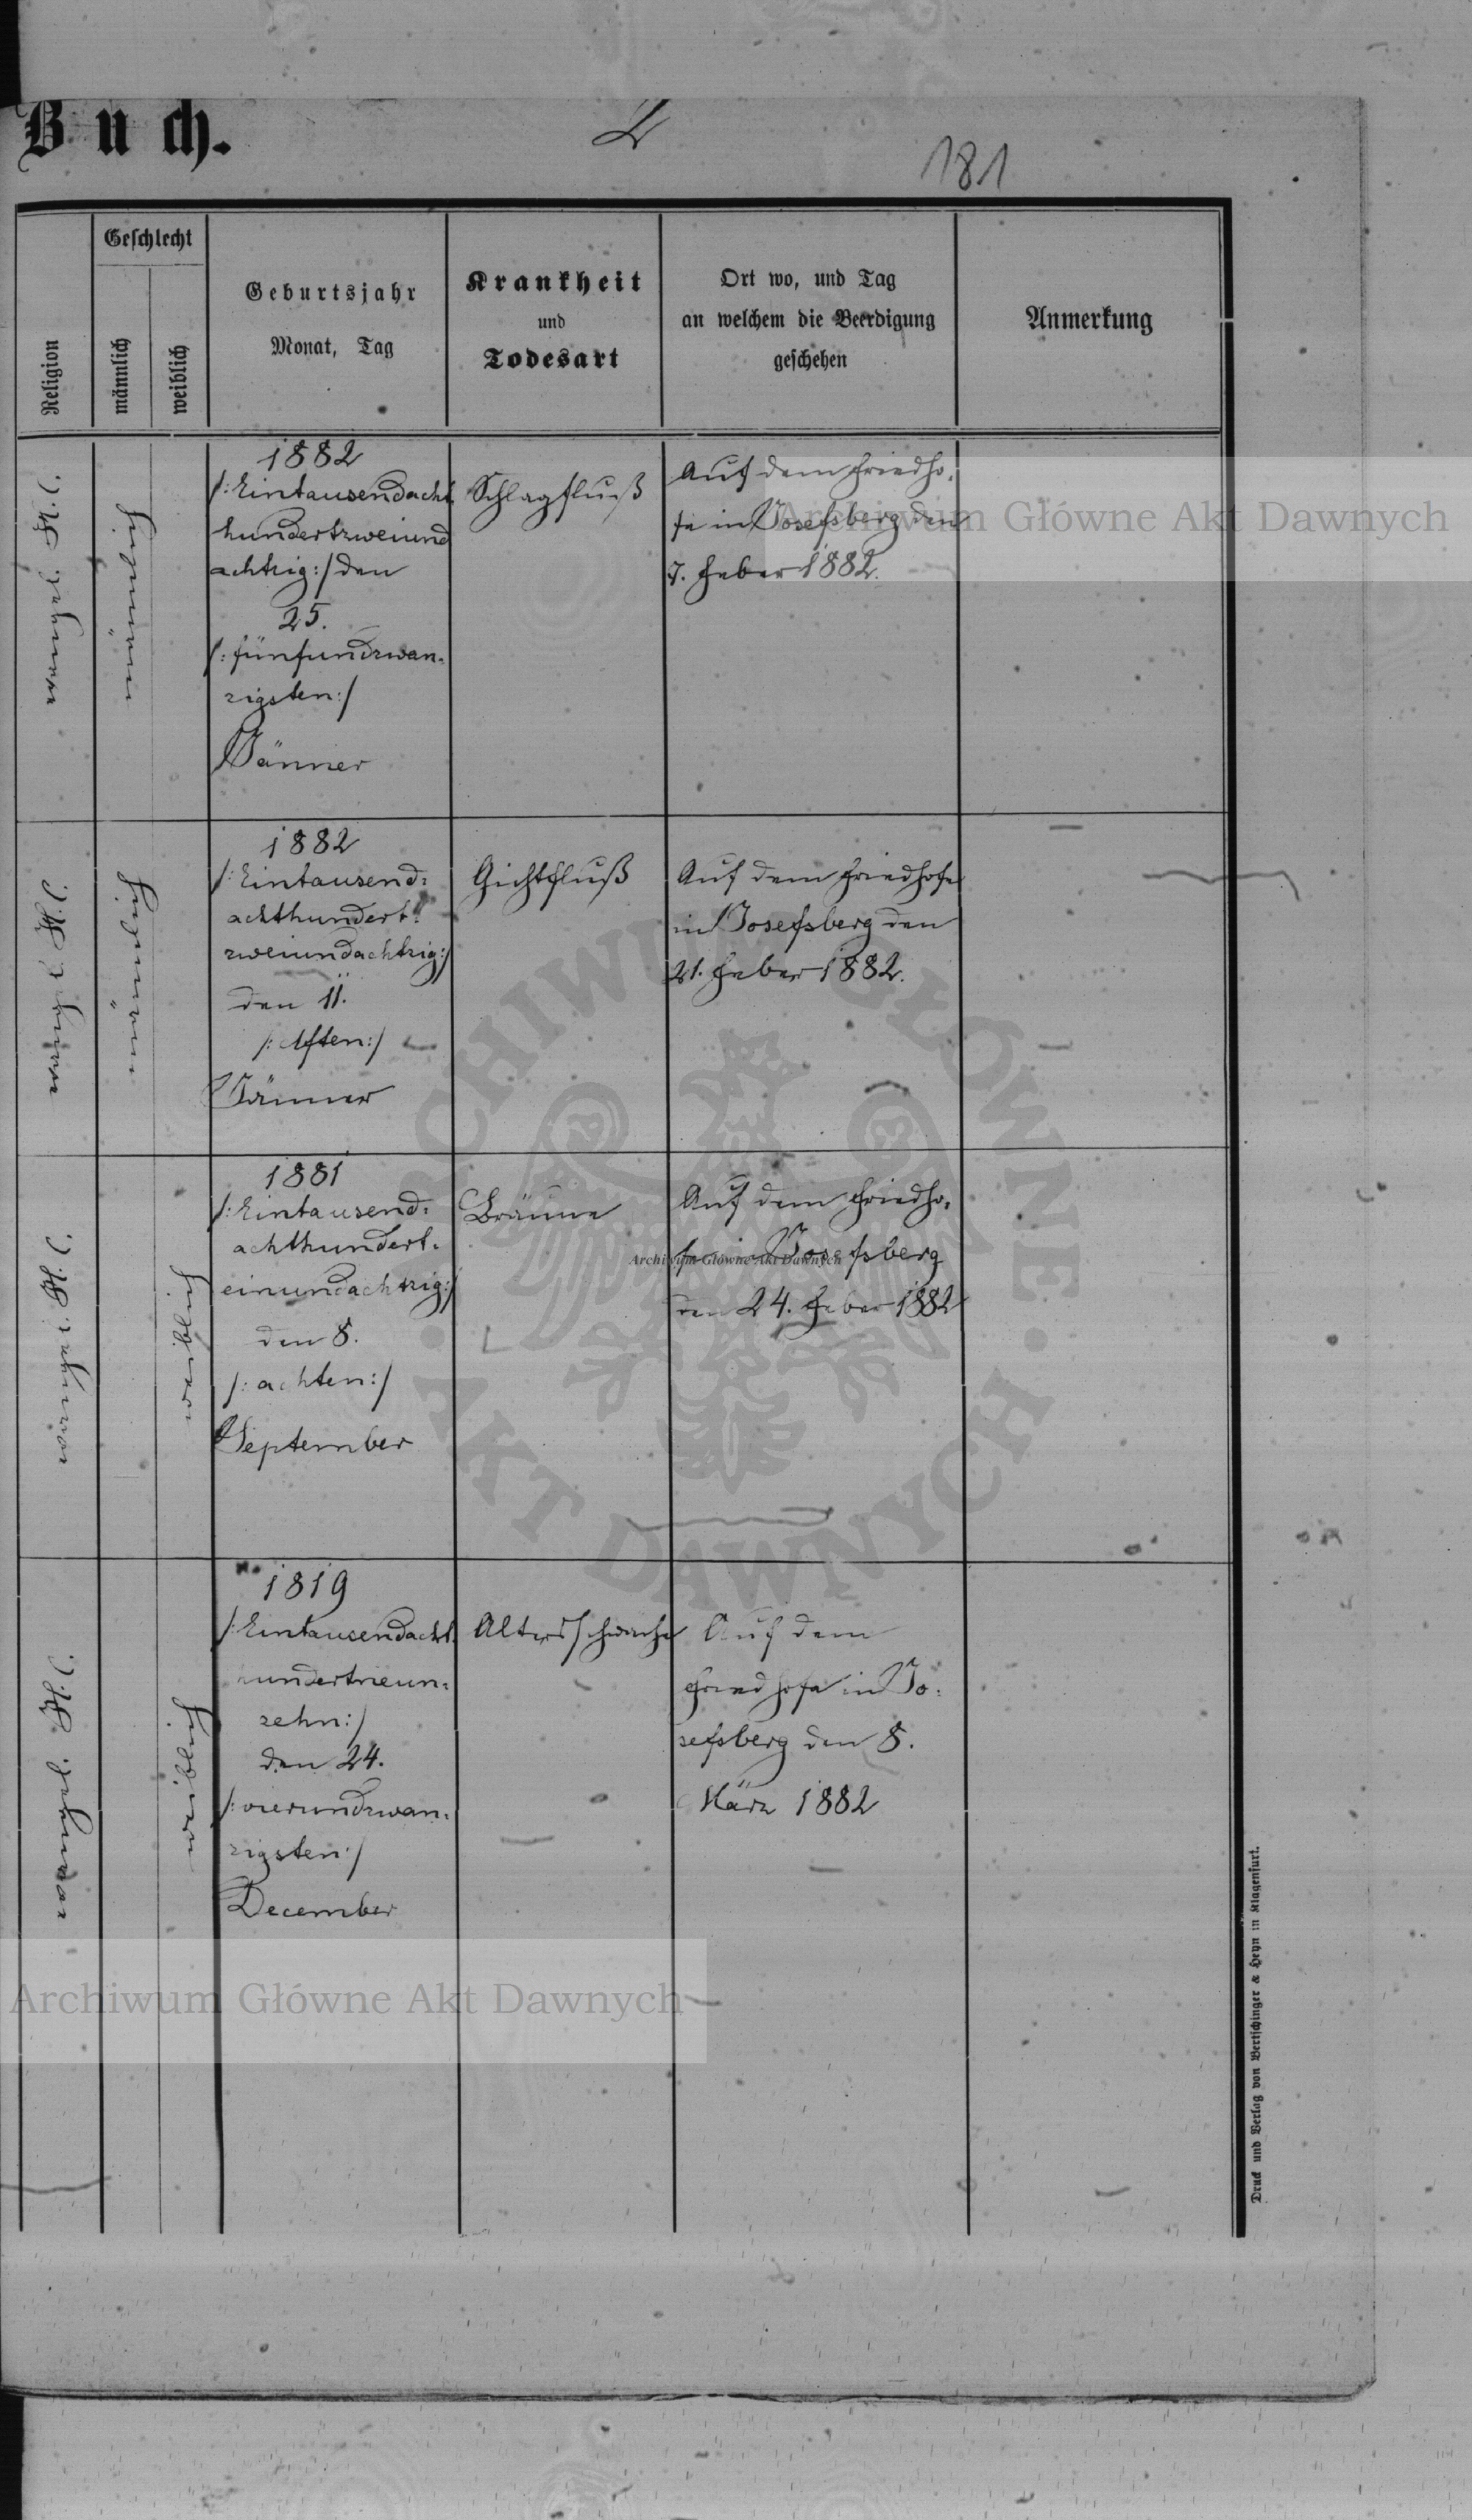 Buch.
181
Religion
Geschlecht
männlich
weiblich
Geburtsjahr
Monat, Tag
Krankheit
und
Todesart
Ort wo, und Tag
an welchem die Beerdigung
geschehen
Anmerkung
männlich
1882
/:Eintausendacht
hundertzweiund
achtzig:/ den
25.
/:fünfundzwan-
zigsten:/
Jänner
Schlagfluß
Auf dem Friedho-
fe in Josefsberg den
7. Feber 1882.
männlich
1882
/:Eintausend-
achthundert-
zweiundachtzig:/
den 11.
/:elften:/
Jänner
Gichtfluß
Auf dem Friedhofe
in Josefsberg den
21. Feber 1882.
weiblich
1881
/:Eintausend-
achthundert-
einundachtzig:/
den 8.
/:achten:/
September
Bräune
Auf dem Friedho-
fe in Josefsberg
den 24. Feber 1882
weiblich
1819
/:Eintausendacht
hundertneun-
zehn:/
den 24.
/:vierundzwan-
zigsten:/
December
Altersschwäche
Auf dem
Friedhofe in Jo-
sefsberg den 8.
März 1882
Druck und Verlag von Bertschinger & Heyn in Klagenfurt.
Archiwum Główne Akt Dawnych
Archiwum Główne Akt Dawnych
Archiwum Główne Akt Dawnych
ARCHIWUM GŁÓWNE · AKT DAWNYCH ·